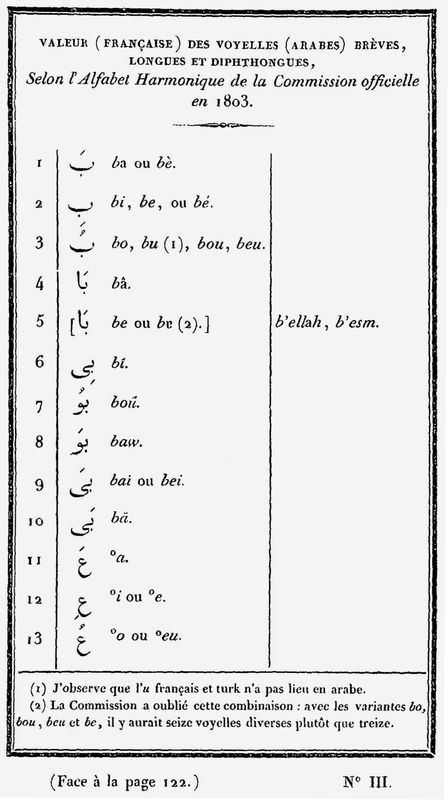 VALEUR (FRANÇAISE) DES VOYELLES (ARABES) BRÈVES,
LONGUES ET DIPHTHONGUES,
Selon l'Alfabet Harmonique de la Commission officielle
en 1803.
1 بَ ba ou bè.
2 بِ bi, be, ou bé.
3 بُ bo, bu (1), bou, beu.
4 بَا bâ.
5 [بَا be ou (2).] b'ellah, b'esm.
6 بِي bî.
7 بُو boû.
8 بَو baw.
9 بَي bai ou bei.
10 بَى bä.
11 عَ °a.
12 عِ °i ou °e.
13 عُ °o ou °eu.
(1) J'observe que l'u français et turk n'a pas lieu en arabe.
(2) La Commission a oublié cette combinaison : avec les variantes bo,
bou, beu et be, il y aurait seize voyelles diverses plutôt que treize.
(Face à la page 122.) N° III.